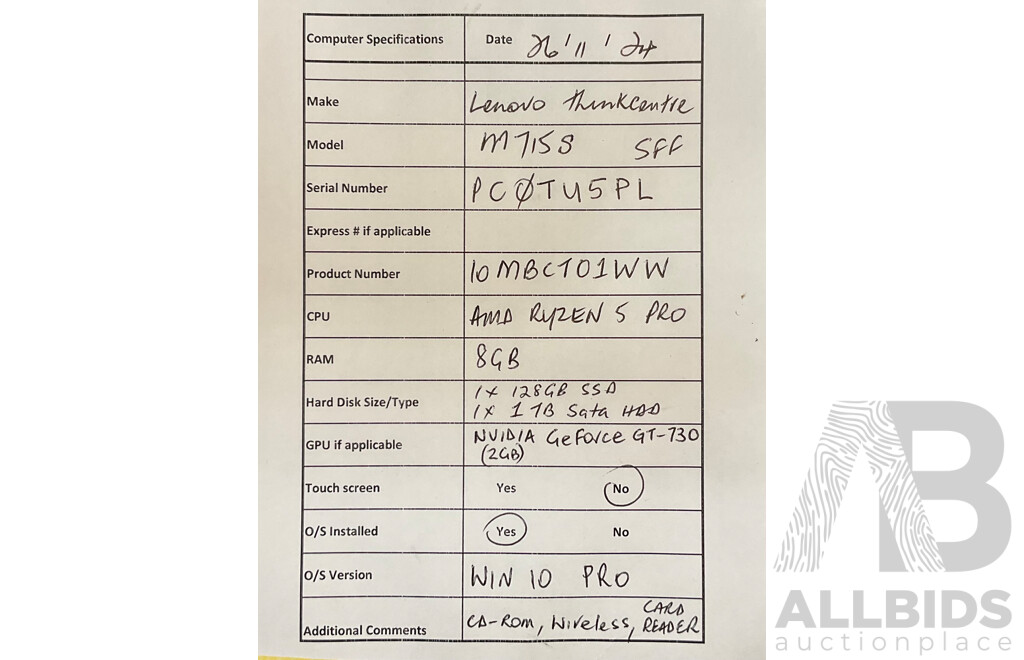 Computer Specifications Date 26 / 11 / 24
Make Lenovo Thinkcentre
Model M715S SFF
Serial Number PC0TU5PL
Express # if applicable
Product Number 10MBCTO1WW
CPU AMD RYZEN 5 PRO
RAM 8GB
Hard Disk Size/Type 1x 128GB SSD
1x 1TB Sata HDD
GPU if applicable NVIDIA GeForce GT-730
(2GB)
Touch screen Yes No
O/S Installed Yes No
O/S Version WIN 10 PRO
Additional Comments CD-ROM, Wireless, CARD
READER
AB
ALLBIDS
auctionplace